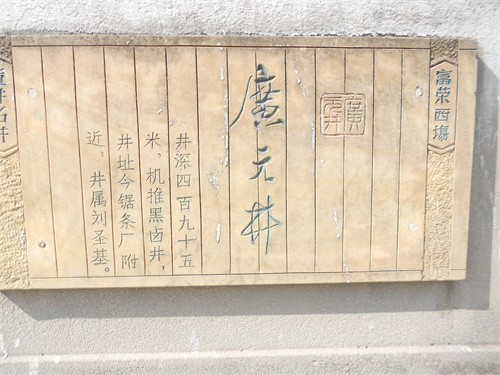 富荣西塲
廣元井
廣元井
井深四百九十五
米，机推黑卤井，
井址今锯条厂附
近，井属刘圣基。